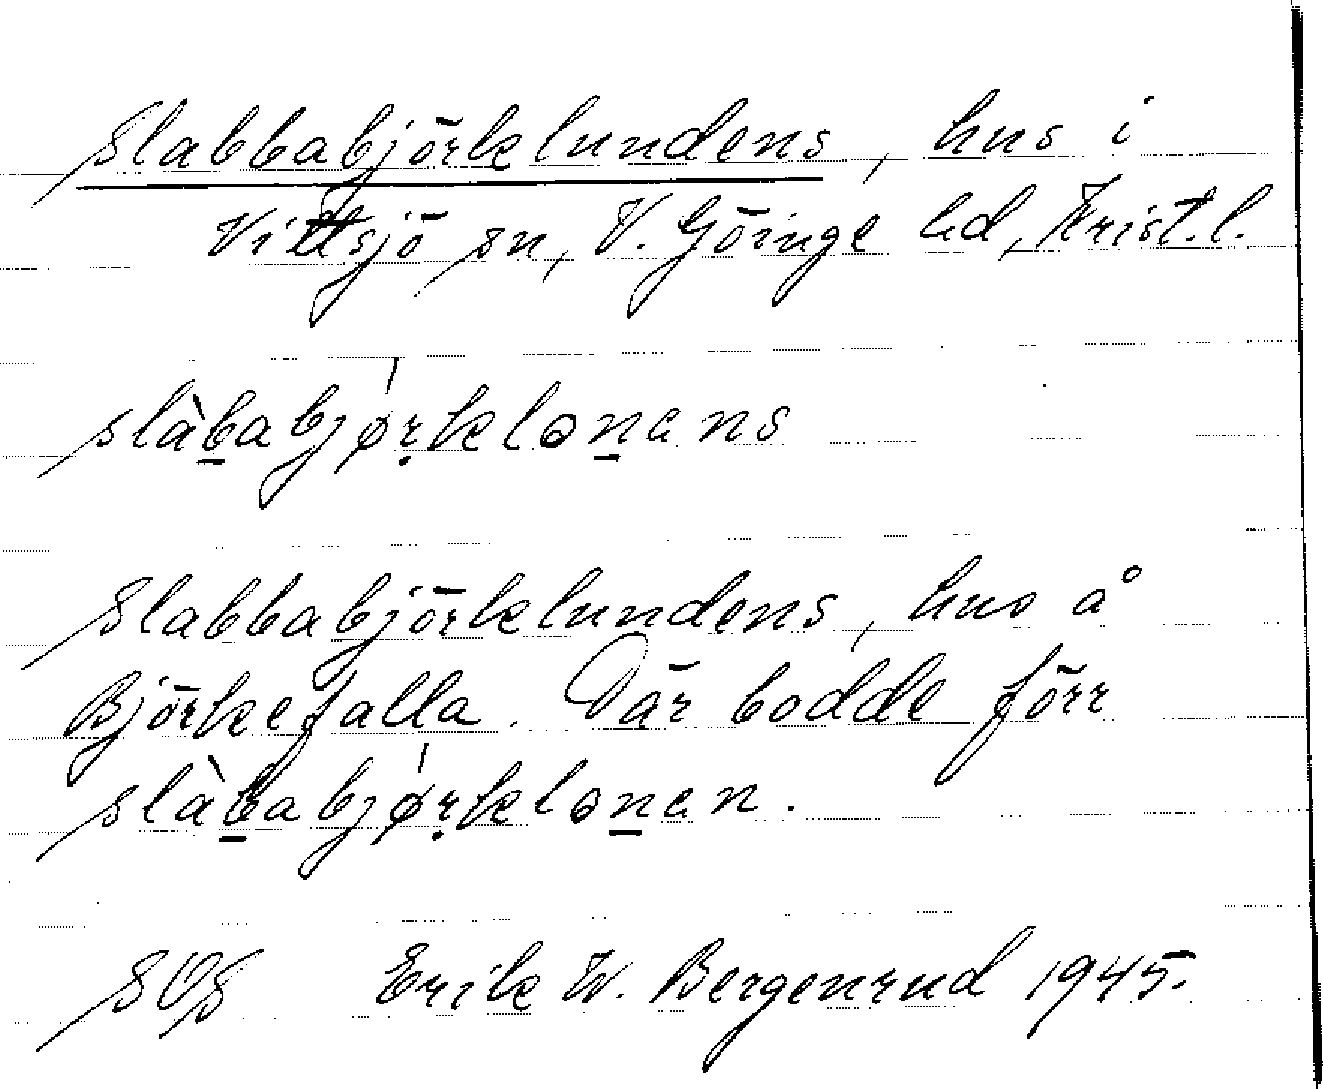 Slabbabjörklundens, hus i
Vittsjö sn, V. Göinge hd, Krist.l.
slàb̲abjø̍ṛklon̲ans
Slabbabjörklundens, hus å
Björkefalla. Där bodde förr
slàb̲abjø̍ṛklon̲an.
SOS Erik W. Bergenrud 1945.